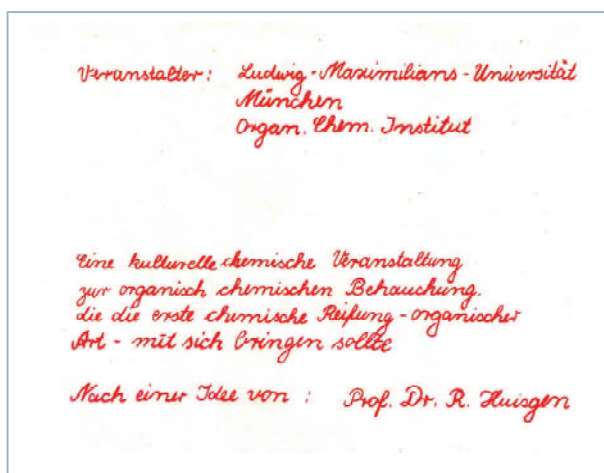 Veranstalter: Ludwig-Maximilians-Universität
München
Organ. Chem. Institut
Eine kulturelle chemische Veranstaltung
zur organisch chemischen Behauchung,
die die erste chemische Reifung-organischer
Art - mit sich bringen sollte
Nach einer Idee von : Prof. Dr. R. Huisgen